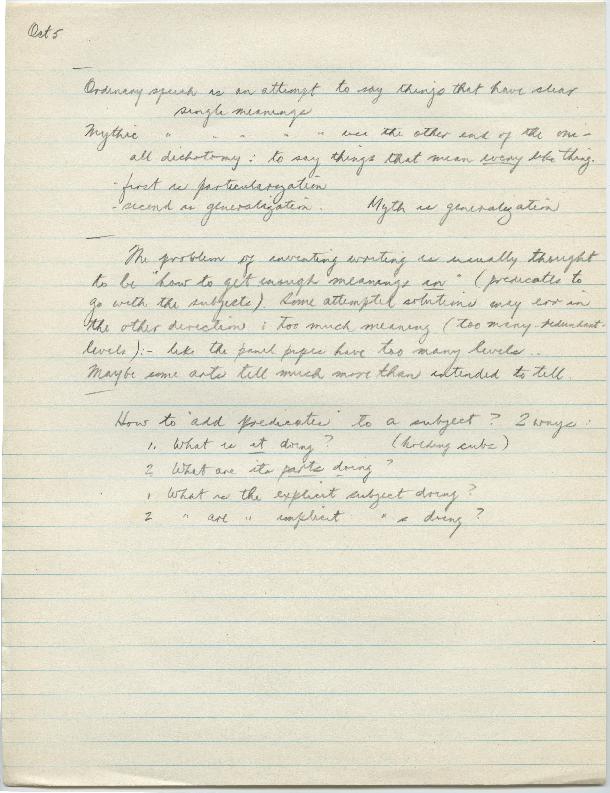 Oct 5
Ordinary speech is an attempt to say things that have clear
single meanings
Mythic " " " " " use the other end of the one-
all dichotomy: to say things that mean every like thing.
- first is particularization
- second is generalization. Myth is generalization
The problem of inventing writing is usually thought
to be "how to get enough meanings in" (predicates to
go with the subjects) Some attempted solutions may err in
the other direction: too much meaning (too many redundant
levels):- like the panel pipes have too many levels..
Maybe some arts tell much more than intended to tell.
How to "add predicates" to a subject? 2 ways:
1. What is it doing? (holding cubs)
2 What are its parts doing?
1 What is the explicit subject doing?
2 " are " implicit " s doing?